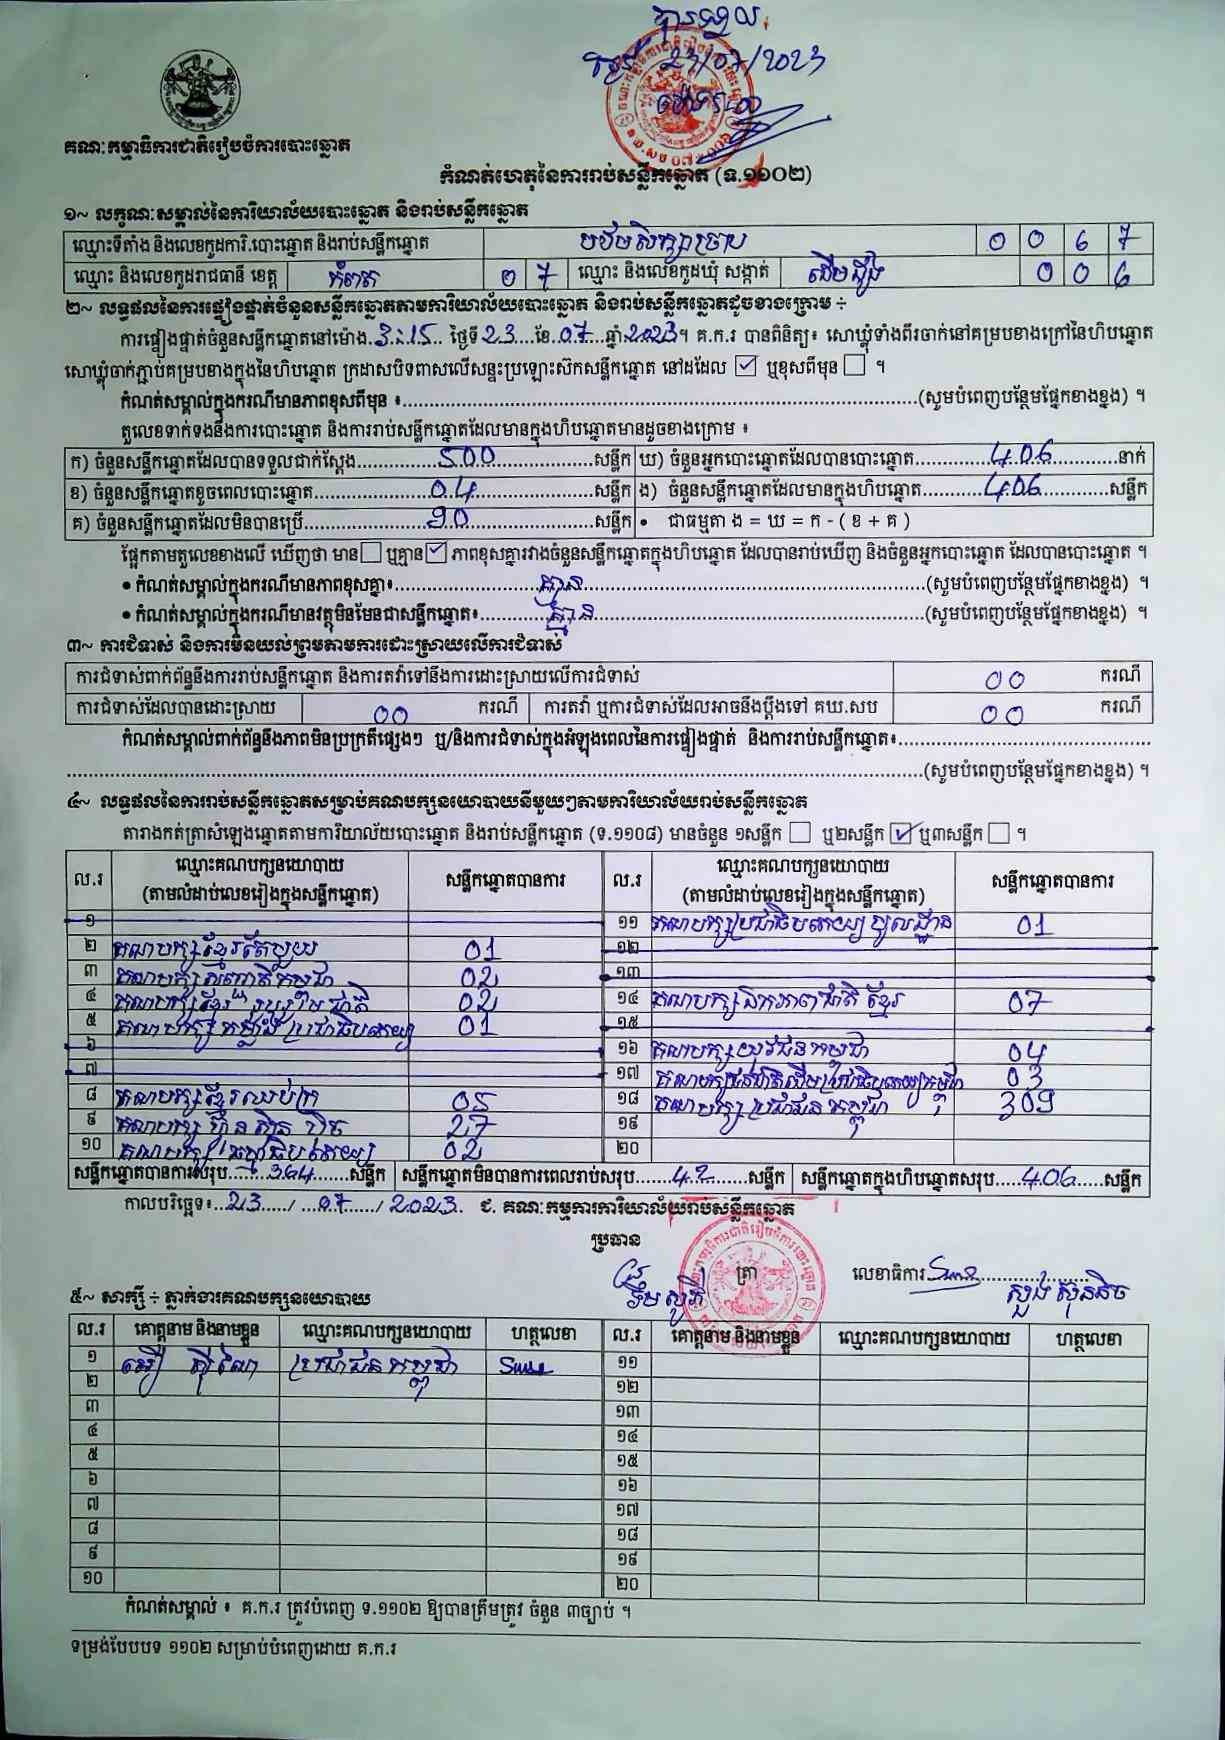 បានទទួល
ថ្ងៃទី 23/07/2023
គណៈកម្មាធិការជាតិរៀបចំការបោះឆ្នោត
កំណត់ហេតុនៃការរាប់សន្លឹកឆ្នោត (ទ.១១០២)
១~ លក្ខណៈសម្គាល់នៃការិយាល័យបោះឆ្នោត និងរាប់សន្លឹកឆ្នោត
ឈ្មោះទីតាំង និងលេខកូដការិ.បោះឆ្នោត និងរាប់សន្លឹកឆ្នោត 0 0 6 7
ឈ្មោះ និងលេខកូដរាជធានី ខេត្ត កំពត 0 7 ឈ្មោះ និងលេខកូដឃុំ សង្កាត់ 0 0 6
២~ លទ្ធផលនៃការផ្ទៀងផ្ទាត់ចំនួនសន្លឹកឆ្នោតតាមការិយាល័យបោះឆ្នោត និងរាប់សន្លឹកឆ្នោតដូចខាងក្រោម ÷
ការផ្ទៀងផ្ទាត់ចំនួនសន្លឹកឆ្នោតនៅម៉ោង.3:15... ថ្ងៃទី23....ខែ.07....ឆ្នាំ2023។ គ.ក.រ បានពិនិត្យ៖ សោឃ្លុំទាំងពីរចាក់នៅគម្របខាងក្រៅនៃហិបឆ្នោត
សោឃ្លុំចាក់ភ្ជាប់គម្របខាងក្នុងនៃហិបឆ្នោត ក្រដាសបិទពាសលើសន្ទះប្រឡោះស៊កសន្លឹកឆ្នោត នៅដដែល ☑ ឬខុសពីមុន ☐ ។
កំណត់សម្គាល់ក្នុងករណីមានភាពខុសពីមុន ៖........(សូមបំពេញបន្ថែមផ្នែកខាងខ្នង) ។
តួលេខទាក់ទងនឹងការបោះឆ្នោត និងការរាប់សន្លឹកឆ្នោតដែលមានក្នុងហិបឆ្នោតមានដូចខាងក្រោម ៖
ក) ចំនួនសន្លឹកឆ្នោតដែលបានទទួលជាក់ស្តែង........500........សន្លឹក ឃ) ចំនួនអ្នកបោះឆ្នោតដែលបានបោះឆ្នោត........406........នាក់
ខ) ចំនួនសន្លឹកឆ្នោតខូចពេលបោះឆ្នោត........04........សន្លឹក ង) ចំនួនសន្លឹកឆ្នោតដែលមានក្នុងហិបឆ្នោត........406........សន្លឹក
គ) ចំនួនសន្លឹកឆ្នោតដែលមិនបានប្រើ........90........សន្លឹក • ជាធម្មតា ង = ឃ = ក - ( ខ + គ )
ផ្អែកតាមតួលេខខាងលើ ឃើញថា មាន ☐ ឬគ្មាន ☑ ភាពខុសគ្នារវាងចំនួនសន្លឹកឆ្នោតក្នុងហិបឆ្នោត ដែលបានរាប់ឃើញ និងចំនួនអ្នកបោះឆ្នោត ដែលបានបោះឆ្នោត ។
• កំណត់សម្គាល់ក្នុងករណីមានភាពខុសគ្នា៖........គ្មាន........(សូមបំពេញបន្ថែមផ្នែកខាងខ្នង) ។
• កំណត់សម្គាល់ក្នុងករណីមានវត្ថុមិនមែនជាសន្លឹកឆ្នោត៖........គ្មាន........(សូមបំពេញបន្ថែមផ្នែកខាងខ្នង) ។
៣~ ការជំទាស់ និងការមិនយល់ព្រមតាមការដោះស្រាយលើការជំទាស់
ការជំទាស់ពាក់ព័ន្ធនឹងការរាប់សន្លឹកឆ្នោត និងការតវ៉ាទៅនឹងការដោះស្រាយលើការជំទាស់ 00 ករណី
ការជំទាស់ដែលបានដោះស្រាយ 00 ករណី ការតវ៉ា ឬការជំទាស់ដែលអាចនឹងប្តឹងទៅ គឃ.សប 00 ករណី
កំណត់សម្គាល់ពាក់ព័ន្ធនឹងភាពមិនប្រក្រតីផ្សេងៗ ឬ/និងការជំទាស់ក្នុងអំឡុងពេលនៃការផ្ទៀងផ្ទាត់ និងការរាប់សន្លឹកឆ្នោត៖........
........(សូមបំពេញបន្ថែមផ្នែកខាងខ្នង) ។
៤~ លទ្ធផលនៃការរាប់សន្លឹកឆ្នោតសម្រាប់គណបក្សនយោបាយនីមួយៗតាមការិយាល័យរាប់សន្លឹកឆ្នោត
តារាងកត់ត្រាសំឡេងឆ្នោតតាមការិយាល័យបោះឆ្នោត និងរាប់សន្លឹកឆ្នោត (ទ.១១០៨) មានចំនួន ១សន្លឹក ☐ ឬ២សន្លឹក ☑ ឬ៣សន្លឹក ☐ ។
ល.រ ឈ្មោះគណបក្សនយោបាយ (តាមលំដាប់លេខរៀងក្នុងសន្លឹកឆ្នោត) សន្លឹកឆ្នោតបានការ ល.រ ឈ្មោះគណបក្សនយោបាយ (តាមលំដាប់លេខរៀងក្នុងសន្លឹកឆ្នោត) សន្លឹកឆ្នោតបានការ
១ ១១ គណបក្សប្រជាធិបតេយ្យមូលដ្ឋាន 01
២ គណបក្សខ្មែរតែមួយ 01 ១២
៣ គណបក្ស 02 ១៣
៤ គណបក្សខ្មែររួបរួមជាតិ 02 ១៤ គណបក្សឯកភាពជាតិខ្មែរ 07
៥ គណបក្សកម្លាំងប្រជាធិបតេយ្យ 01 ១៥
៦ ១៦ គណបក្សយុវជនកម្ពុជា 04
៧ ១៧ គណបក្សជនជាតិដើមប្រជាធិបតេយ្យកម្ពុជា 03
៨ គណបក្សខ្មែរឈប់ក្រ 05 ១៨ គណបក្សប្រជាជនកម្ពុជា 309
៩ គណបក្សហ៊្វុនស៊ិនប៉ិច 27 ១៩
១០ គណបក្សធម្មាធិបតេយ្យ 02 ២០
សន្លឹកឆ្នោតបានការសរុប.....364.....សន្លឹក សន្លឹកឆ្នោតមិនបានការពេលរាប់សរុប.....42.....សន្លឹក សន្លឹកឆ្នោតក្នុងហិបឆ្នោតសរុប.....406.....សន្លឹក
កាលបរិច្ឆេទ៖..23..../...07..../ 2023. ជ. គណៈកម្មការការិយាល័យរាប់សន្លឹកឆ្នោត
ប្រធាន
ត្រា លេខាធិការ
៥~ សាក្សី ÷ ភ្នាក់ងារគណបក្សនយោបាយ
ល.រ គោត្តនាម និងនាមខ្លួន ឈ្មោះគណបក្សនយោបាយ ហត្ថលេខា ល.រ គោត្តនាម និងនាមខ្លួន ឈ្មោះគណបក្សនយោបាយ ហត្ថលេខា
១ ប្រជាជនកម្ពុជា ១១
២ ១២
៣ ១៣
៤ ១៤
៥ ១៥
៦ ១៦
៧ ១៧
៨ ១៨
៩ ១៩
១០ ២០
កំណត់សម្គាល់ ៖ គ.ក.រ ត្រូវបំពេញ ទ.១១០២ ឱ្យបានត្រឹមត្រូវ ចំនួន ៣ច្បាប់ ។
ទម្រង់បែបបទ ១១០២ សម្រាប់បំពេញដោយ គ.ក.រ